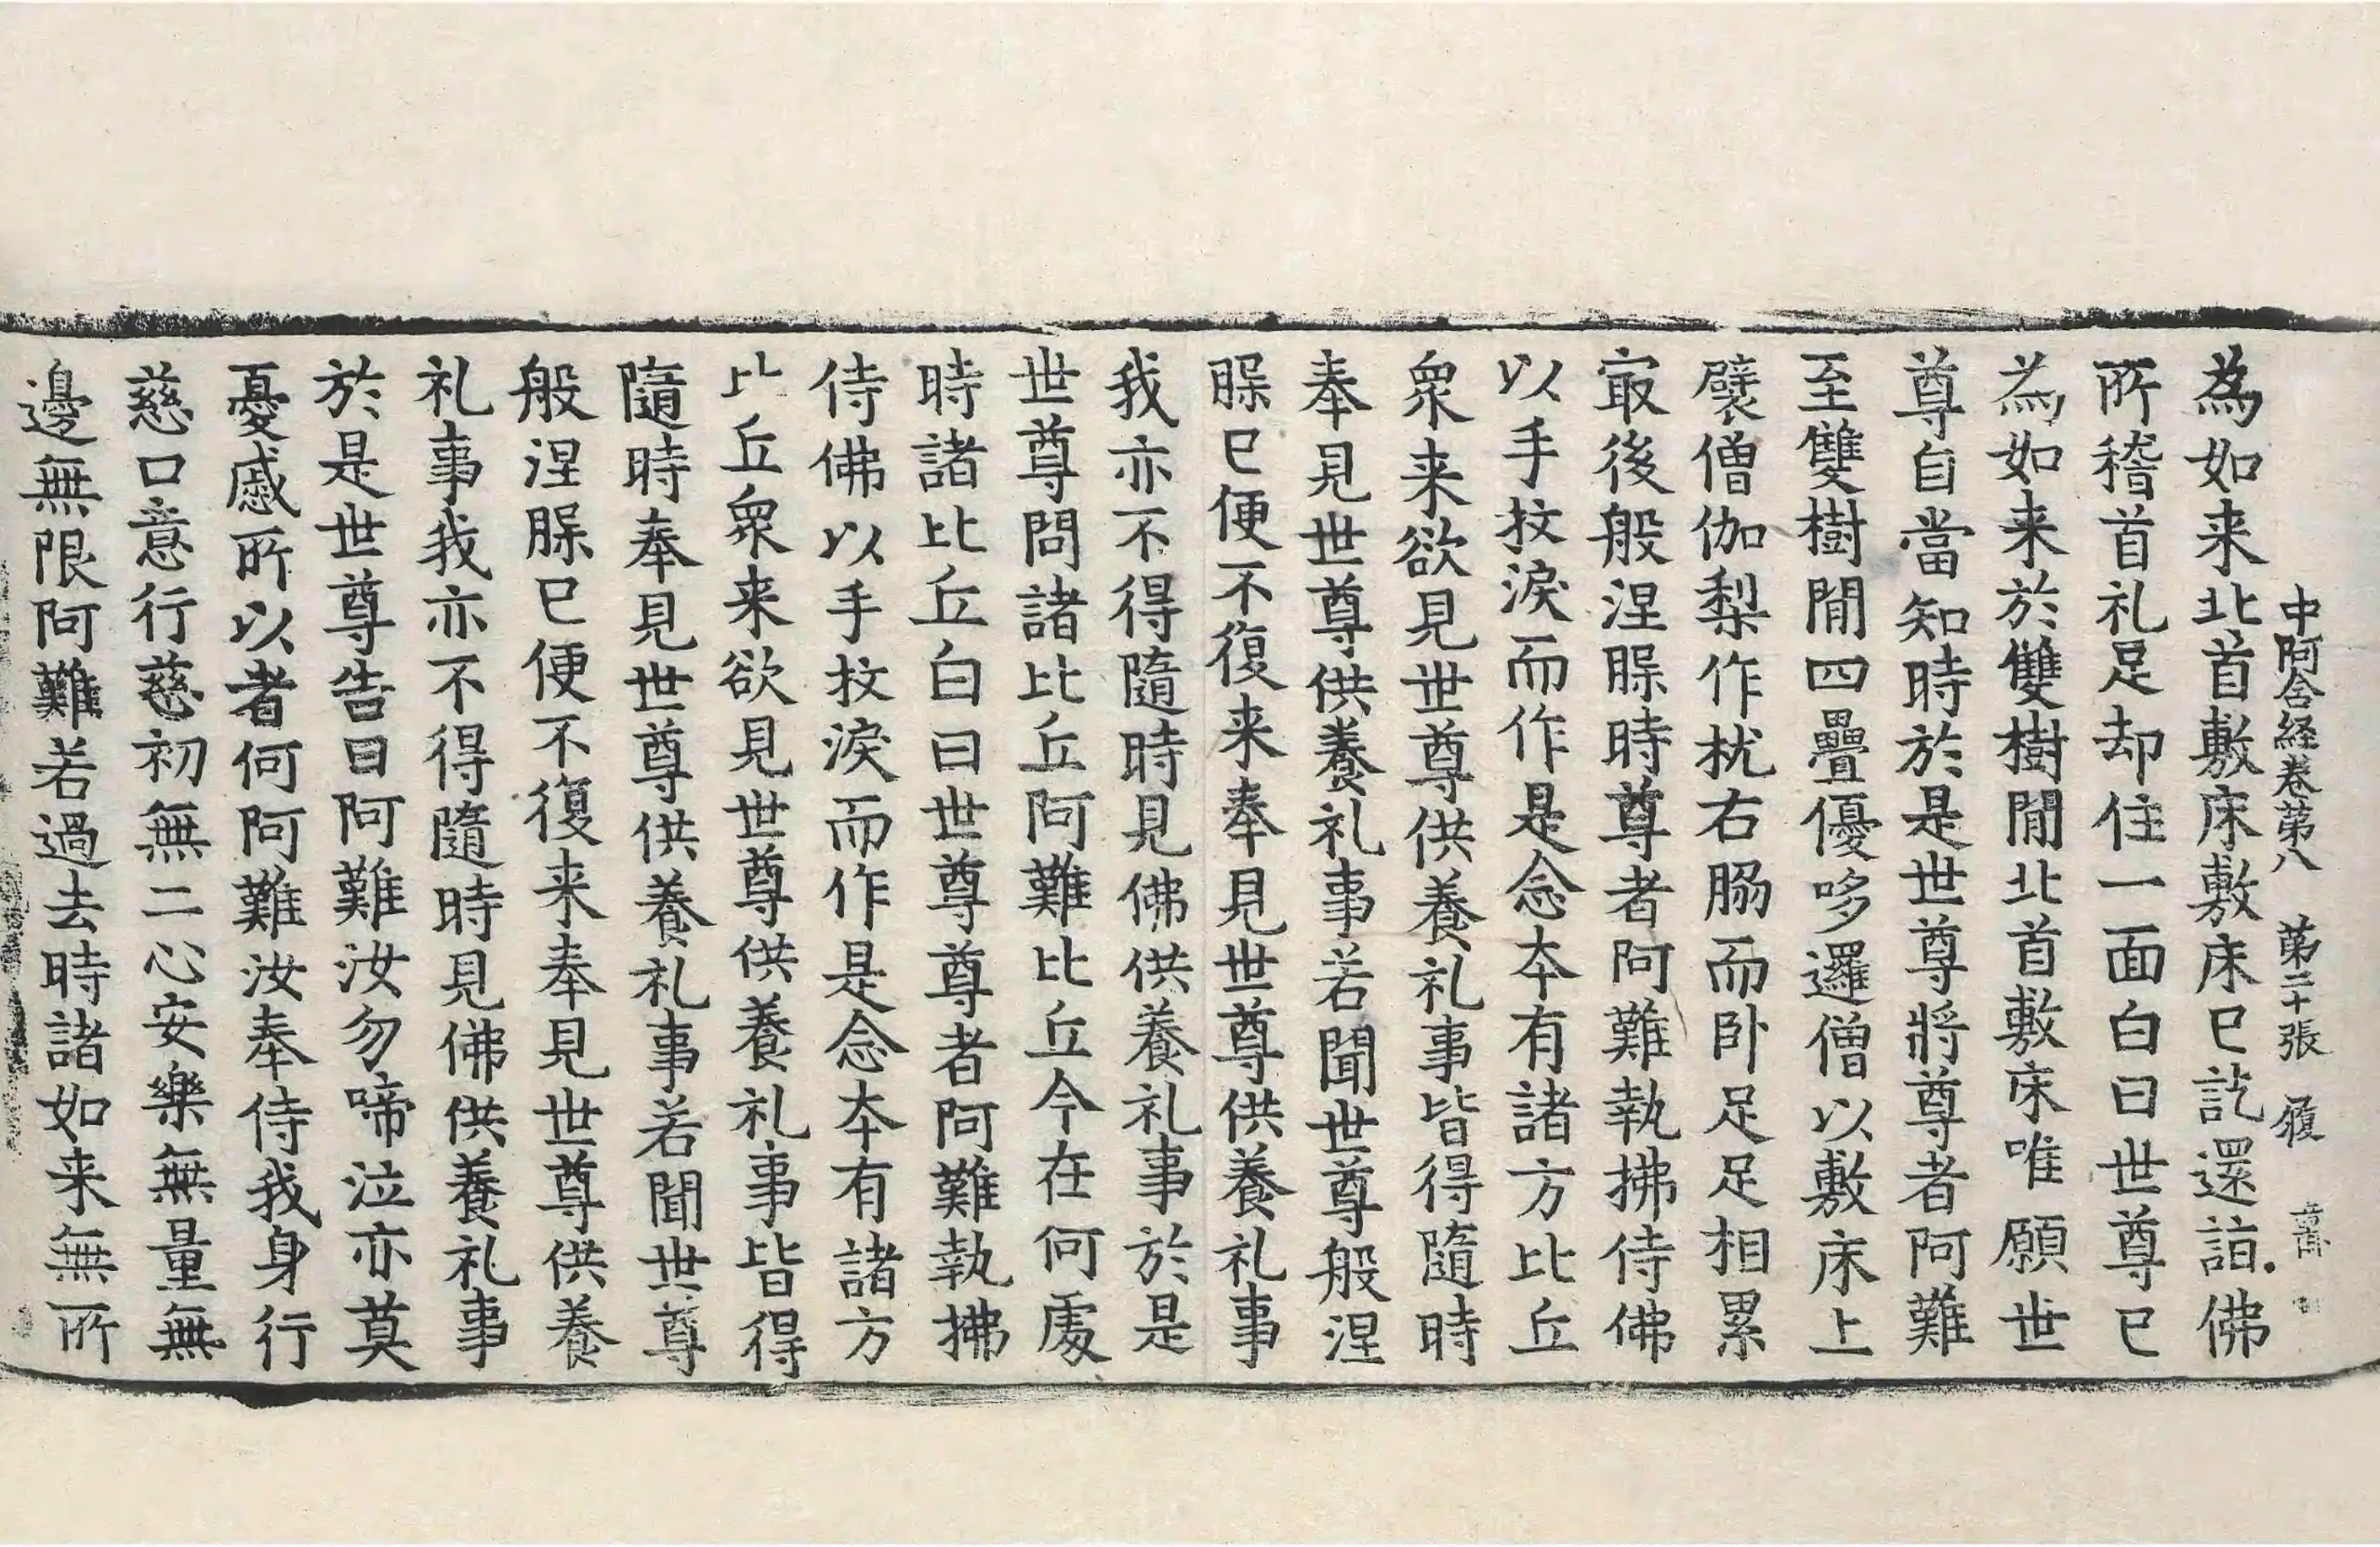 中阿含経巻苐八 苐二十張 履
為如来北首敷床敷床已訖還詣佛
所稽首礼足却住一面白曰世尊已
為如来於雙樹閒北首敷床唯願世
尊自當知時於是世尊將尊者阿難
至雙樹閒四疊優哆邏僧以敷床上
襞僧伽梨作枕右脇而卧足足相累
冣後般涅脲時尊者阿難執拂侍佛
以手抆淚而作是念夲有諸方比丘
衆来欲見世尊供養礼事皆得隨時
奉見世尊供養礼事若聞世尊般涅
脲已便不復来奉見世尊供養礼事
我亦不得隨時見佛供養礼事於是
世尊問諸比丘阿難比丘今在何處
時諸比丘白曰世尊尊者阿難執拂
侍佛以手抆淚而作是念夲有諸方
比丘衆来欲見世尊供養礼事皆得
隨時奉見世尊供養礼事若聞世尊
般涅脲已便不復来奉見世尊供養
礼事我亦不得隨時見佛供養礼事
於是世尊告曰阿難汝勿啼泣亦莫
憂慼所以者何阿難汝奉侍我身行
慈口意行慈初無二心安樂無量無
邊無限阿難若過去時諸如来無所